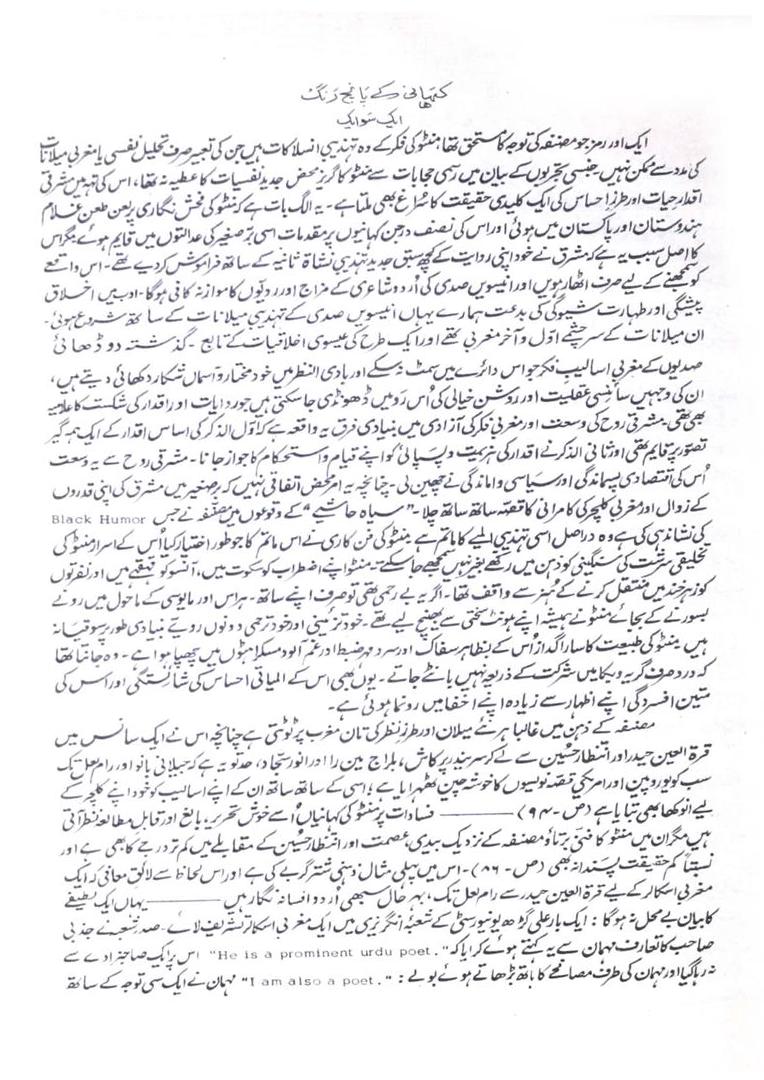 کہانی کے پانچ رنگ
ایک سو ایک
ایک اور رمز جو مصنفہ کی توجہ کا مستحق تھا، منٹو کی فکر کے وہ تہذیبی انسلاکات ہیں جن کی تعبیر صرف تحلیل نفسی یا مغربی میلانات
کی مدد سے ممکن نہیں۔ جنسی تجربوں کے بیان میں رسمی حجابات سے منٹو کا گریز محض جدید نفسیات کا عطیہ نہ تھا، اس کی تہہ میں مشرقی
اقدار حیات اور طرز احساس کی ایک کلیدی حقیقت کا سراغ بھی ملتا ہے۔ یہ الگ بات ہے کہ منٹو کی فحش نگاری پر لعن طعن غلام
ہندوستان اور پاکستان میں ہوئی اور اس کی نصف درجن کہانیوں پر مقدمات اسی برصغیر کی عدالتوں میں قایم ہوئے مگر اس
کا اصل سبب یہ ہے کہ مشرق نے خود اپنی روایت کے کچھ سبق جدید تہذیبی نشاۃ ثانیہ کے ساتھ فراموش کر دیے تھے۔ اس واقعے
کو سمجھنے کے لیے صرف اٹھارہویں اور انیسویں صدی کی اُردو شاعری کے مزاج اور رویوں کا موازنہ کافی ہوگا۔ ادب میں اخلاق
پیشگی اور طہارت شیوگی کی بدعت ہمارے یہاں انیسویں صدی کے تہذیبی میلانات کے ساتھ شروع ہوئی۔
ان میلانات کے سرچشمے اول و آخر مغربی تھے اور ایک طرح کی عیسوی اخلاقیات کے تابع۔ گذشتہ دو ڈھائی
صدیوں کے مغربی اسالیب فکر جو اس دائرے میں سمٹ نہ سکے اور بادی النظر میں خود مختار و آسماں شکار دکھائی دیتے ہیں،
ان کی وجہیں سائنسی عقلیت اور روشن خیالی کی اُس رَو میں ڈھونڈی جا سکتی ہیں جو روایات اور اقدار کی شکست کا علامیہ
بھی تھی۔ مشرقی روح کی وسعت اور مغربی فکر کی آزادی میں بنیادی فرق یہ واقعہ ہے کہ اول الذکر کی اساس اقدار کے ایک ہمہ گیر
تصور پر قایم تھی اور ثانی الذکر نے اقدار کی ہزیمت و پسپائی کو اپنے قیام و استحکام کا جواز جانا۔ مشرقی روح سے یہ وسعت
اُس کی اقتصادی پسماندگی اور سیاسی واماندگی نے چھین لی۔ چنانچہ یہ امر محض اتفاقی نہیں کہ برصغیر میں مشرق کی اپنی قدروں
کے زوال اور مغربی کلچر کی کامرانی کا قصہ ساتھ ساتھ چلا۔ "سیاہ حاشیے" کے وقوعوں میں مصنفہ نے جس Black Humor
کی نشاندہی کی ہے وہ دراصل اسی تہذیبی المیے کا ماتم ہے۔ منٹو کی فن کاری نے اس ماتم کا جو طور اختیار کیا اُس کے اسرار منٹو کی
تخلیقی سرشت کی سنگینی کو ذہن میں رکھے بغیر نہیں سمجھے جا سکتے۔ منٹو اپنے اضطراب کو سکوت میں، آنسو کو قہقہے میں اور نفرتوں
کو زہر خند میں منتقل کرنے کے ہنر سے واقف تھا۔ اگر یہ بے رحمی تھی تو صرف اپنے ساتھ۔ ہراس اور مایوسی کے ماحول میں رونے
بسورنے کے بجائے منٹو نے ہمیشہ اپنے ہونٹ سختی سے بھینچ لیے تھے۔ خود تزئینی اور خود ترحمی دونوں رویے بنیادی طور پر سوقیانہ
ہیں۔ منٹو کی طبیعت کا سارا گداز اُس کے بظاہر سفاک اور سرد مہر ضبط اور غم آلود مسکراہٹوں میں چھپا ہوا ہے۔ وہ جانتا تھا
کہ درد صرف گریہ و بکا میں شرکت کے ذریعہ نہیں بانٹے جاتے۔ یوں بھی اس کے المیاتی احساس کی شائستگی اور اس کی
متین افسردگی اپنے اظہار سے زیادہ اپنے اخفا میں رونما ہوئی ہے۔
مصنفہ کے ذہن میں غالباً ہر نئے میلان اور طرز نظر کی تان مغرب پر ٹوٹتی ہے چنانچہ اس نے ایک سانس میں
قرۃ العین حیدر اور انتظار حسین سے لے کر سریندر پرکاش، بلراج مین را اور انور سجاد، حد تو یہ ہے کہ جیلانی بانو اور رام لعل تک
سب کو یوروپین اور امریکی قصہ نویسوں کا خوشہ چیں ٹھہرایا ہے؛ اسی کے ساتھ ساتھ ان کے اپنے اسالیب کو خود اپنے کلچر کے
لیے انوکھا بھی بتایا ہے (ص۔ ۹۴) ——— فسادات پر منٹو کی کہانیاں اُسے خوش تحریر، بالغ اور قابل مطالعہ نظر آتی
ہیں مگر ان میں منٹو کا فنی برتاؤ مصنفہ کے نزدیک بیدی، عصمت اور انتظار حسین کے مقابلے میں کم تر درجے کا بھی ہے اور
نسبتاً کم حقیقت پسندانہ بھی (ص۔ ۸۶)۔ اس میں پہلی مثال ذہنی شتر گربے کی ہے اور اس لحاظ سے لائق معافی کہ ایک
مغربی اسکالر کے لیے قرۃ العین حیدر سے رام لعل تک، بہر حال سبھی اُردو افسانہ نگار ہیں ——— یہاں ایک لطیفے
کا بیان بے محل نہ ہوگا: ایک بار علی گڑھ یونیورسٹی کے شعبۂ انگریزی میں ایک مغربی اسکالر تشریف لائے۔ صدر شعبہ نے جذبی
صاحب کا تعارف مہمان سے یہ کہتے ہوئے کرایا کہ "He is a prominent urdu poet." اس پر ایک صاحبزادے سے
نہ رہا گیا اور مہمان کی طرف مصافحے کا ہاتھ بڑھاتے ہوئے بولے: "I am also a poet." مہمان نے ایک سی توجہ کے ساتھ